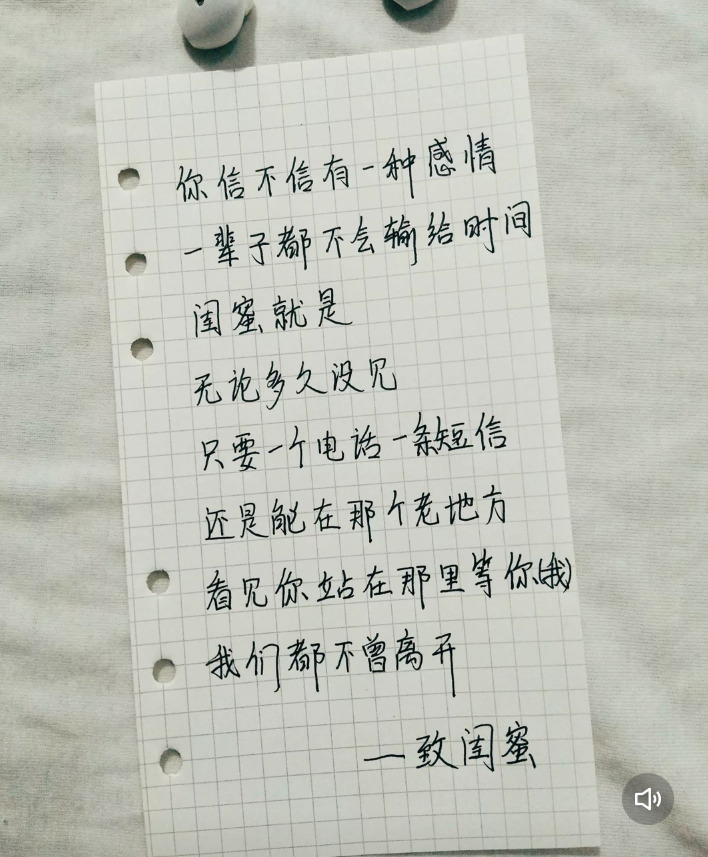 你信不信有一种感情
一辈子都不会输给时间
闺蜜就是
无论多久没见
只要一个电话一条短信
还是能在那个老地方
看见你站在那里等你(我)
我们都不曾离开
—致闺蜜